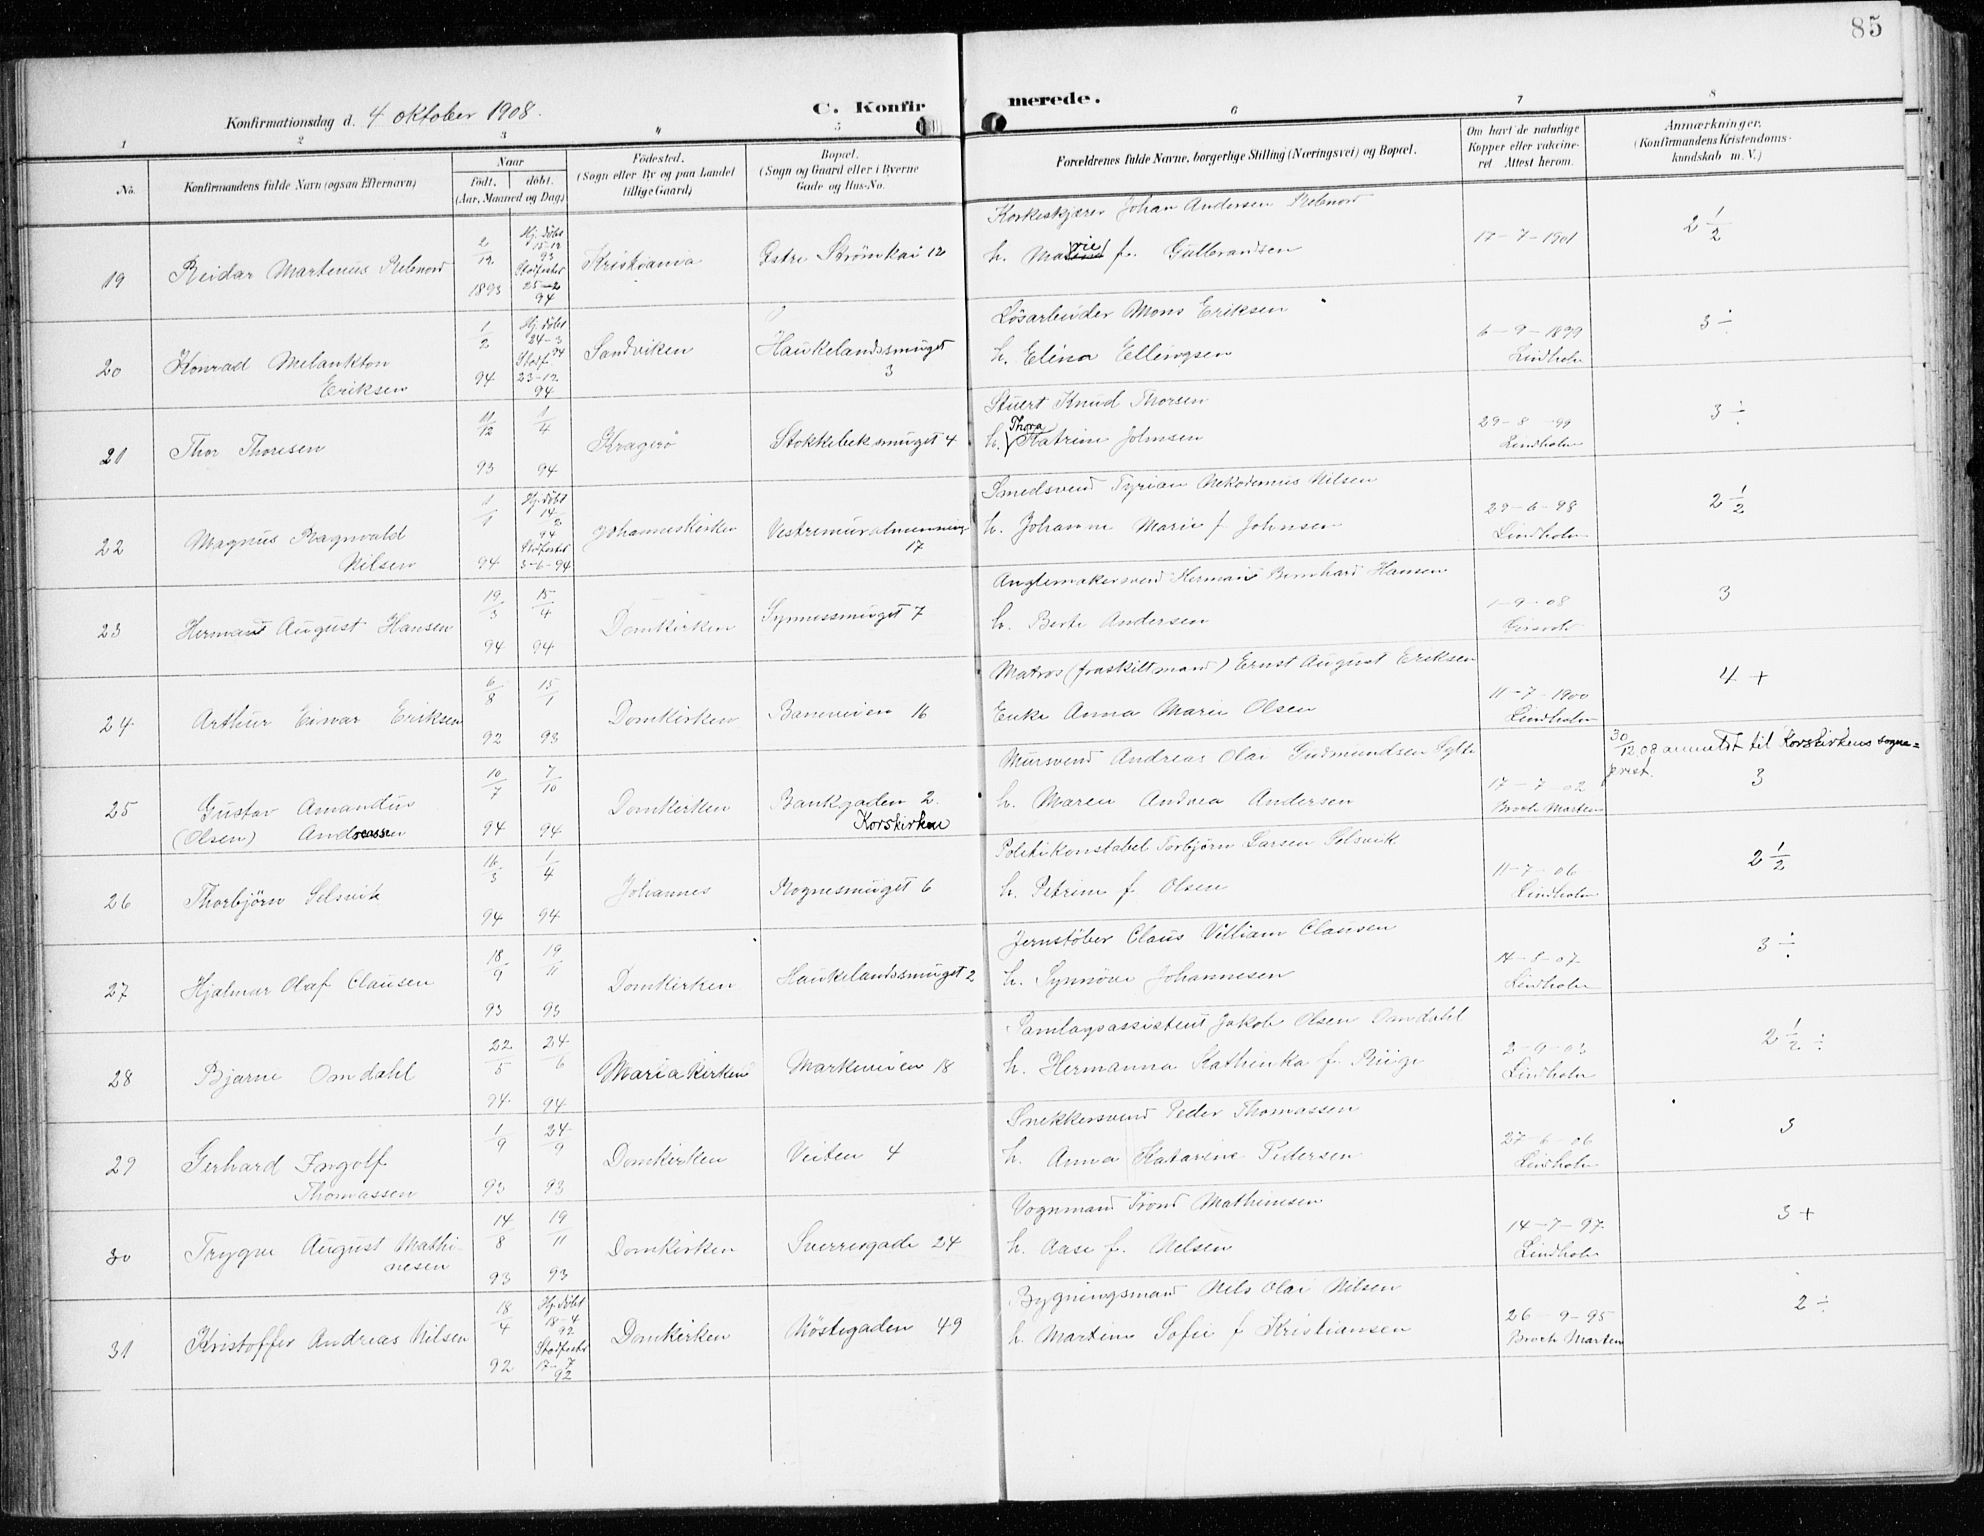 85
Konfirmationsdag d. 4 oktober 1908.
C. Konfirmerede.
1 2 3 " 5 6 7 8
No.
Konfirmandens fulde Navn (ogsaa Efternavn)
Naar
født. døbt.
(Aar, Maaned og Dag)
Fødested.
(Sogn eller By og paa Landet
tillige Gaard)
Bopæl.
(Sogn og Gaard eller i Byerne
Gade og Hus-No.
Forældrenes fulde Navne, borgerlige Stilling (Næringsvei) og Bopæl.
Om havt de naturlige
Kopper eller vakcine-
ret. Attest herom.
Anmærkninger.
(Konfirmandens Kristendoms-
kundskab m. V.)
19 Reidar Martenus Rebnord
2/12 1893
Hj. døbt 15-12 93 Stadfestet 25-2 94
Kristiania
Østre Strømkai 12
Johan Andersen Rebnord
h. Marie f. Gulbrandsen
17-7-1901
2 1/2
20 Konrad Melankton
Eriksen
1/2 94
Hj. døbt 24-3 94 Stadf. 23-12 94
Sandviken
Haukelandssmuget
3
Løsarbeider Mons Eriksen
h. Elina Ellingsen
6-9-1899
Lindholm
3 ÷
21 Thor Thoresen
11/12 93
1/4 94
Kragerø
Stokkebeksmuget 4
Stuert Knud Thorsen
h. Thora Katrine Johnsen
29-8-99
Lindholm
3 ÷
22 Magnus Ragnvald
Nilsen
1/1 94
Hj. døbt 14/2 94 Stadfestet 3-6-94
Johanneskirken
Vestremuralmenning
17
Smedsvend Tyrian Nekodemus Nilsen
h. Johanne Marie f. Johnsen
29-6-98
Lindholm
2 1/2
23 Herman August Hansen
19/3 94
15/4 94
Domkirken
Synnessmuget 7
Herman Bernhard Hansen
h. Berte Andersen
1-9-08
3
24 Arthur Einar Eriksen
6/8 92
15/1 93
Domkirken
Baneveien 16
Matros (fraskilt mand) Ernst August Eriksen
Enke Anna Marie Olsen
11-7-1900
Lindholm
4 +
25 Gustav Amandus
(Olsen) Andreassen
10/7 94
7/10 94
Domkirken
Bankgaden 2.
Korskirken
Mursvend Andreas Olai Gudmundsen Sylte
h. Maren Andrea Andersen
17-7-02
Broch Martens
30/12 08 anmeldt til Korskirkens sogne=
prest.
3
26 Thorbjørn Solsvik
16/3 94
1/4 94
Johannes
Rognesmuget 6
Politikonstabel Torbjørn Larsen Solsvik
h. Petrine f. Olsen
11-7-06
Lindholm
2 1/2
27 Hjalmar Olaf Clausen
18/9 93
19/11 93
Domkirken
Haukelandssmuget 2
Jernstøber Claus Villiam Clausen
h. Synnøve Johannesen
14-8-07
Lindholm
3 ÷
28 Bjarne Omdahl
22/5 94
24/6 94
Mariakirken
Markeveien 18
Samlagsassistent Jakob Olsen Omdahl
h. Hermanna Kathinka f.
2-9-03
Lindholm
2 1/2 ÷
29 Gerhard Ingolf
Thomassen
1/9 93
24/9 93
Domkirken
Veiten 4
Snekkersvend Peder Thomassen
h. Anna Katarine Pedersen
27-6-06
Lindholm
3
30 Trygve August Mathi-
nesen
14/8 93
19/11 93
Domkirken
Sverresgade 24
Vognmand Trond Mathinesen
h. Aase f. Nilsen
14-7-97
Lindholm
3 +
31 Kristoffer Andreas Nilsen
18/4 92
Hj. døbt 18-4 92 Stadfestet 17-7 92
Domkirken
Nøstegaden 49
Bygningsmand Nils Olai Nilsen
h. Martine Sofie f. Kristiansen
26-9-95
Broch Martens
2 ÷